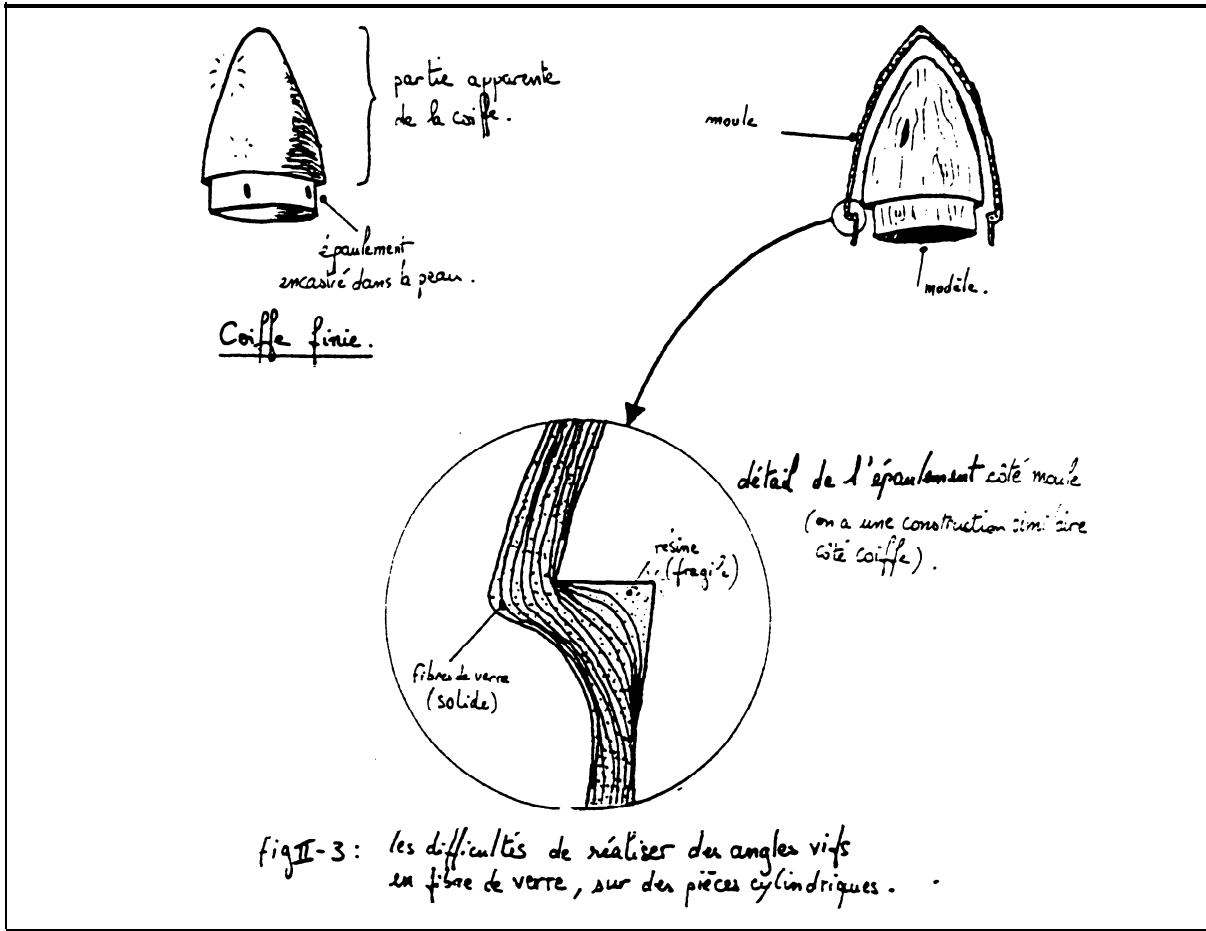 partie apparente
de la coiffe.
épaulement
encastré dans la peau.
Coiffe finie.
moule
modèle.
détail de l'épaulement côté moule
(on a une construction similaire
côté coiffe).
résine
(fragile)
fibres de verre
(solide)
fig II-3 : les difficultés de réaliser des angles vifs
en fibre de verre, sur des pièces cylindriques.